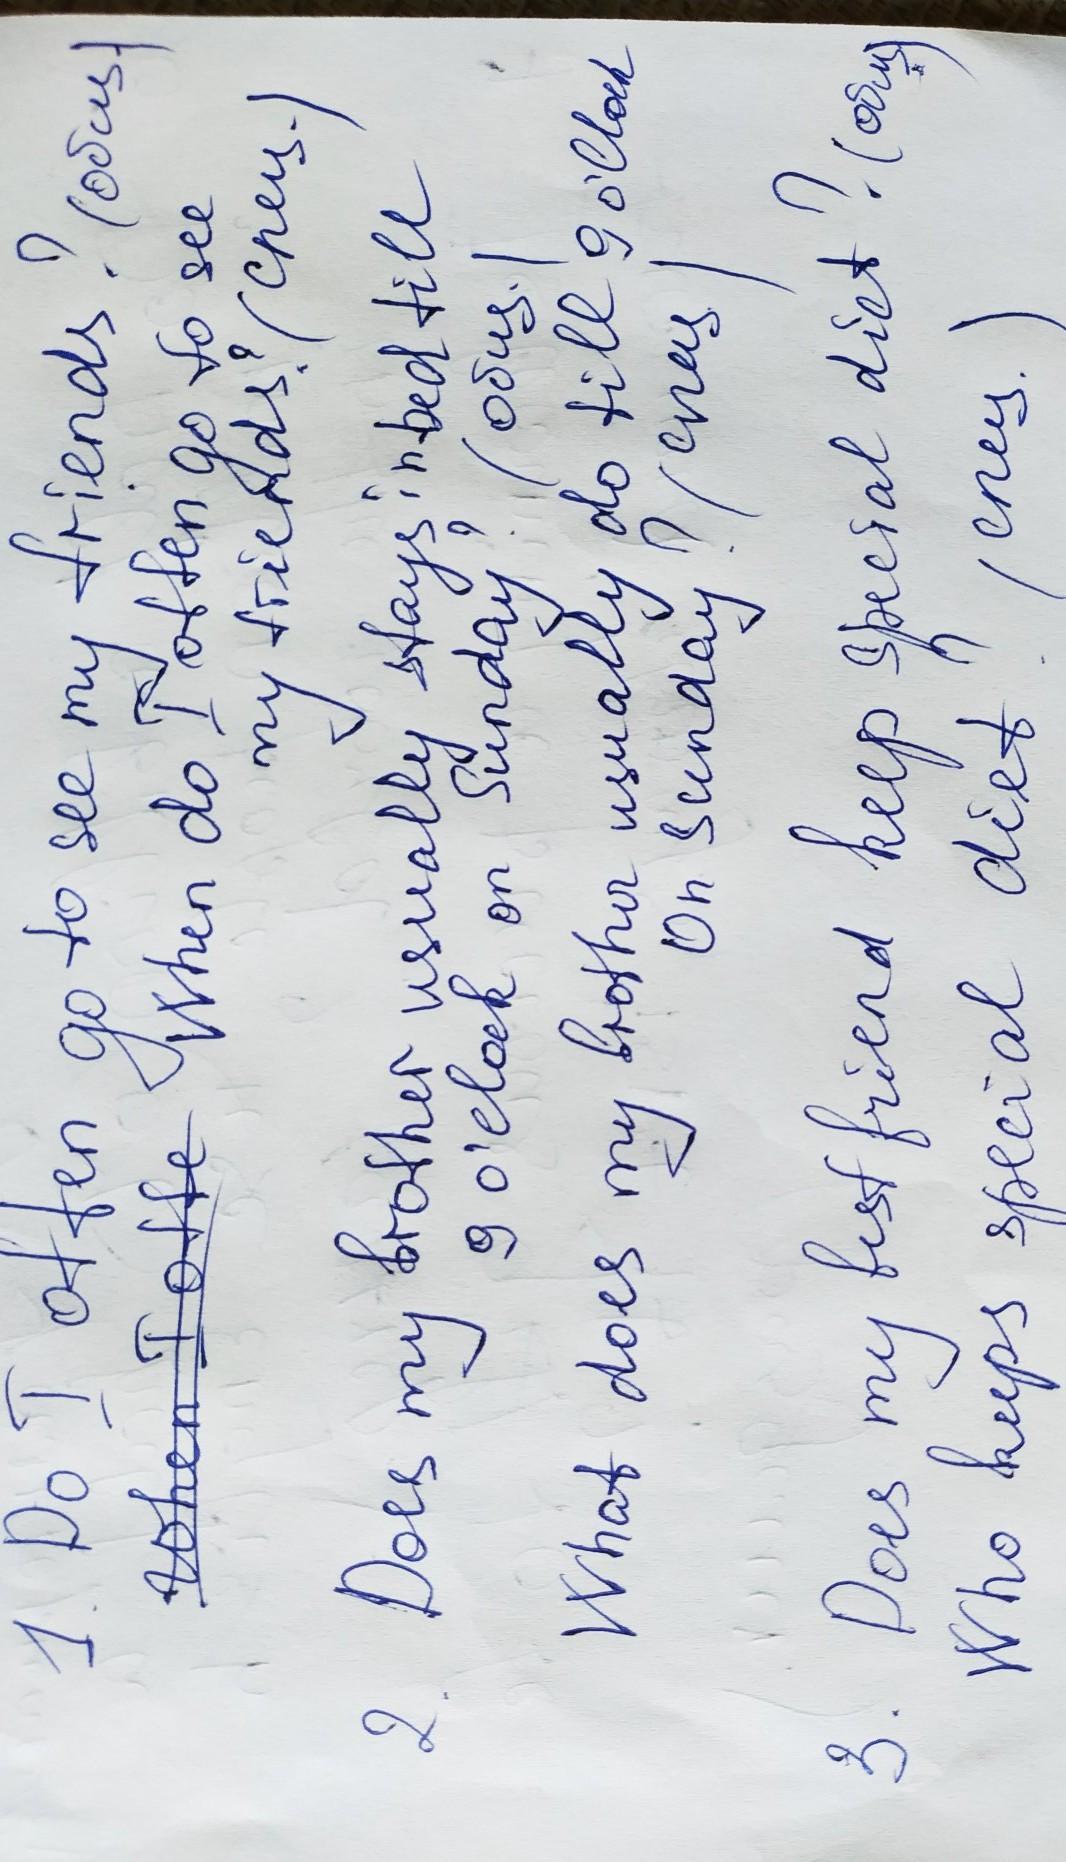 1. Do I often go to see my friends? (общ)
When I ofte When do I often go to see
my friends? (спец.)
2. Does my brother usually stays in bed till
9 o'clock on Sunday? (общ.)
What does my brother usually do till 9 o'clock
On Sunday? (спец)
3. Does my best friend keep special diet? (общ)
Who keeps special diet? (спец.)